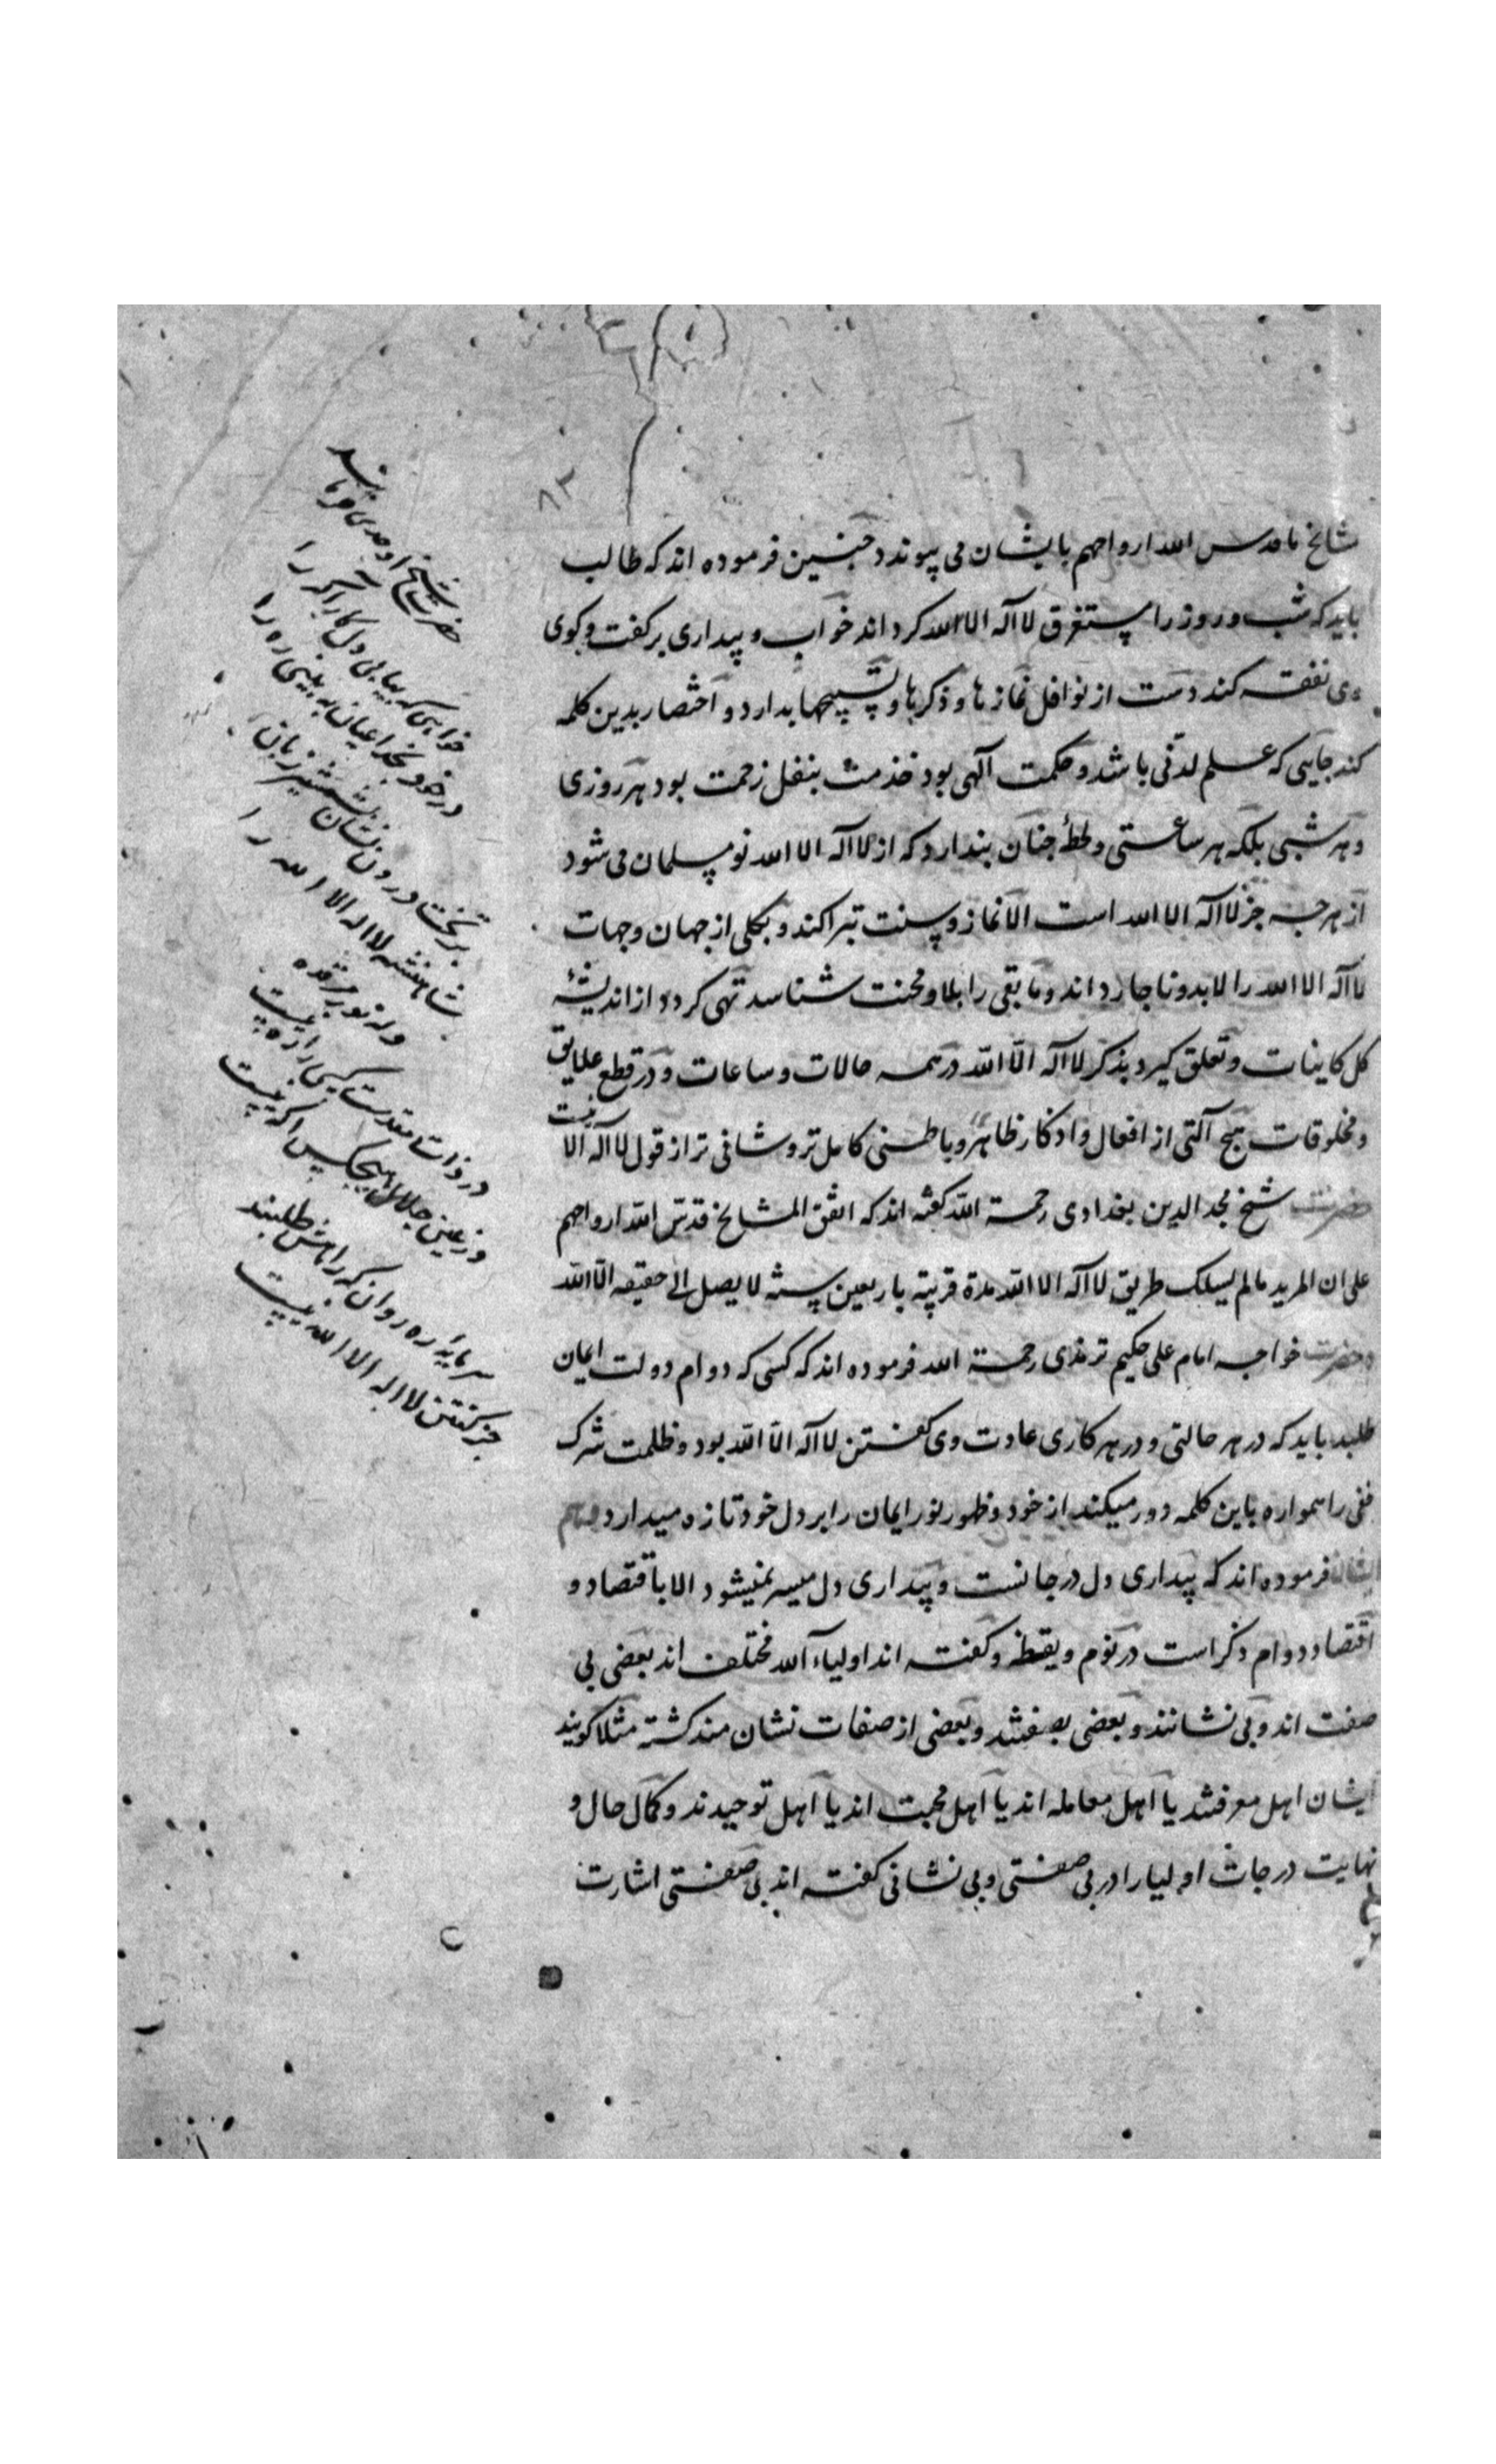 ۸۲
مشایخ ما قدس الله ارواحهم بایشان می پیوندد چنین فرموده اند که طالب
باید که شب و روز را مستغرق لا اله الا الله گرداند خواب و بیداری بر گفت و گوی
وی نفقه کند دست از نوافل نمازها و ذکرها و تسبیحها بدارد و اختصار بدین کلمه
کند جایی که علم لدنی باشد و حکمت الهی بود خدمت بنفل زحمت بود هر روزی
و هر شبی بلکه هر ساعتی و لحظهٔ چنان پندارد که از لا اله الا الله نو مسلمان می شود
از هر چه جز لا اله الا الله است الا نماز و سنت تبرا کند و بکلی از جهان و جهات
لا اله الا الله را لابد و ناچار داند و مابقی را بلا و محنت شناسد تهی گردد از اندیشهٔ
کل کاینات و تعلق گیرد بذکر لا اله الا الله در همه حالات و ساعات و در قطع علایق
و مخلوقات هیچ آلتی از افعال و اذکار ظاهر و باطنی کامل تر و شافی تر از قول لا اله الا الله نیست
حضرت شیخ مجد الدین بغدادی رحمة الله گفته اند که اتفق المشایخ قدس الله ارواحهم
علی ان المرید مالم یسلک طریق لا اله الا الله مدة قریبة باربعین سنة لا یصل الی حقیقه الا الله
و حضرت خواجه امام علی حکیم ترمذی رحمة الله فرموده اند که کسی که دوام دولت ایمان
طلبد باید که در هر حالتی و در هر کاری عادت وی گفتن لا اله الا الله بود و ظلمت شرک
خفی را همواره باین کلمه دور میکند از خود و ظهور نور ایمان را بر دل خود تازه میدارد و هم
ایشان فرموده اند که بیداری دل درجاتست و بیداری دل میسر نمیشود الا باقتصاد و
اقتصاد دوام ذکر است در نوم و یقظه و گفته اند اولیاء الله مختلف اند بعضی بی
صفت اند و بی نشانند و بعضی بصفتند و بعضی از صفات نشان مند گشته مثلا گویند
ایشان اهل معرفتند یا اهل معامله اند یا اهل محبت اند یا اهل توحیدند و کمال حال و
نهایت درجات اولیا را در بی صفتی و بی نشانی گفته اند بی صفتی اشارت
حضرت شیخ اوحدی فرمایند
خواهی که بیابی دل کارآگه را
در خود بخدا عیان ببینی ره را
بر تخت درون نشان بشمشیر زبان
شاهنشه لا اله الا الله را
وله نور مرقده
در ذات مقدست کسی را ره نیست
وز عین جلال هیچکس آگه نیست
سرمایه ره روان که راهش طلبند
جز گفتن لا اله الا الله نیست